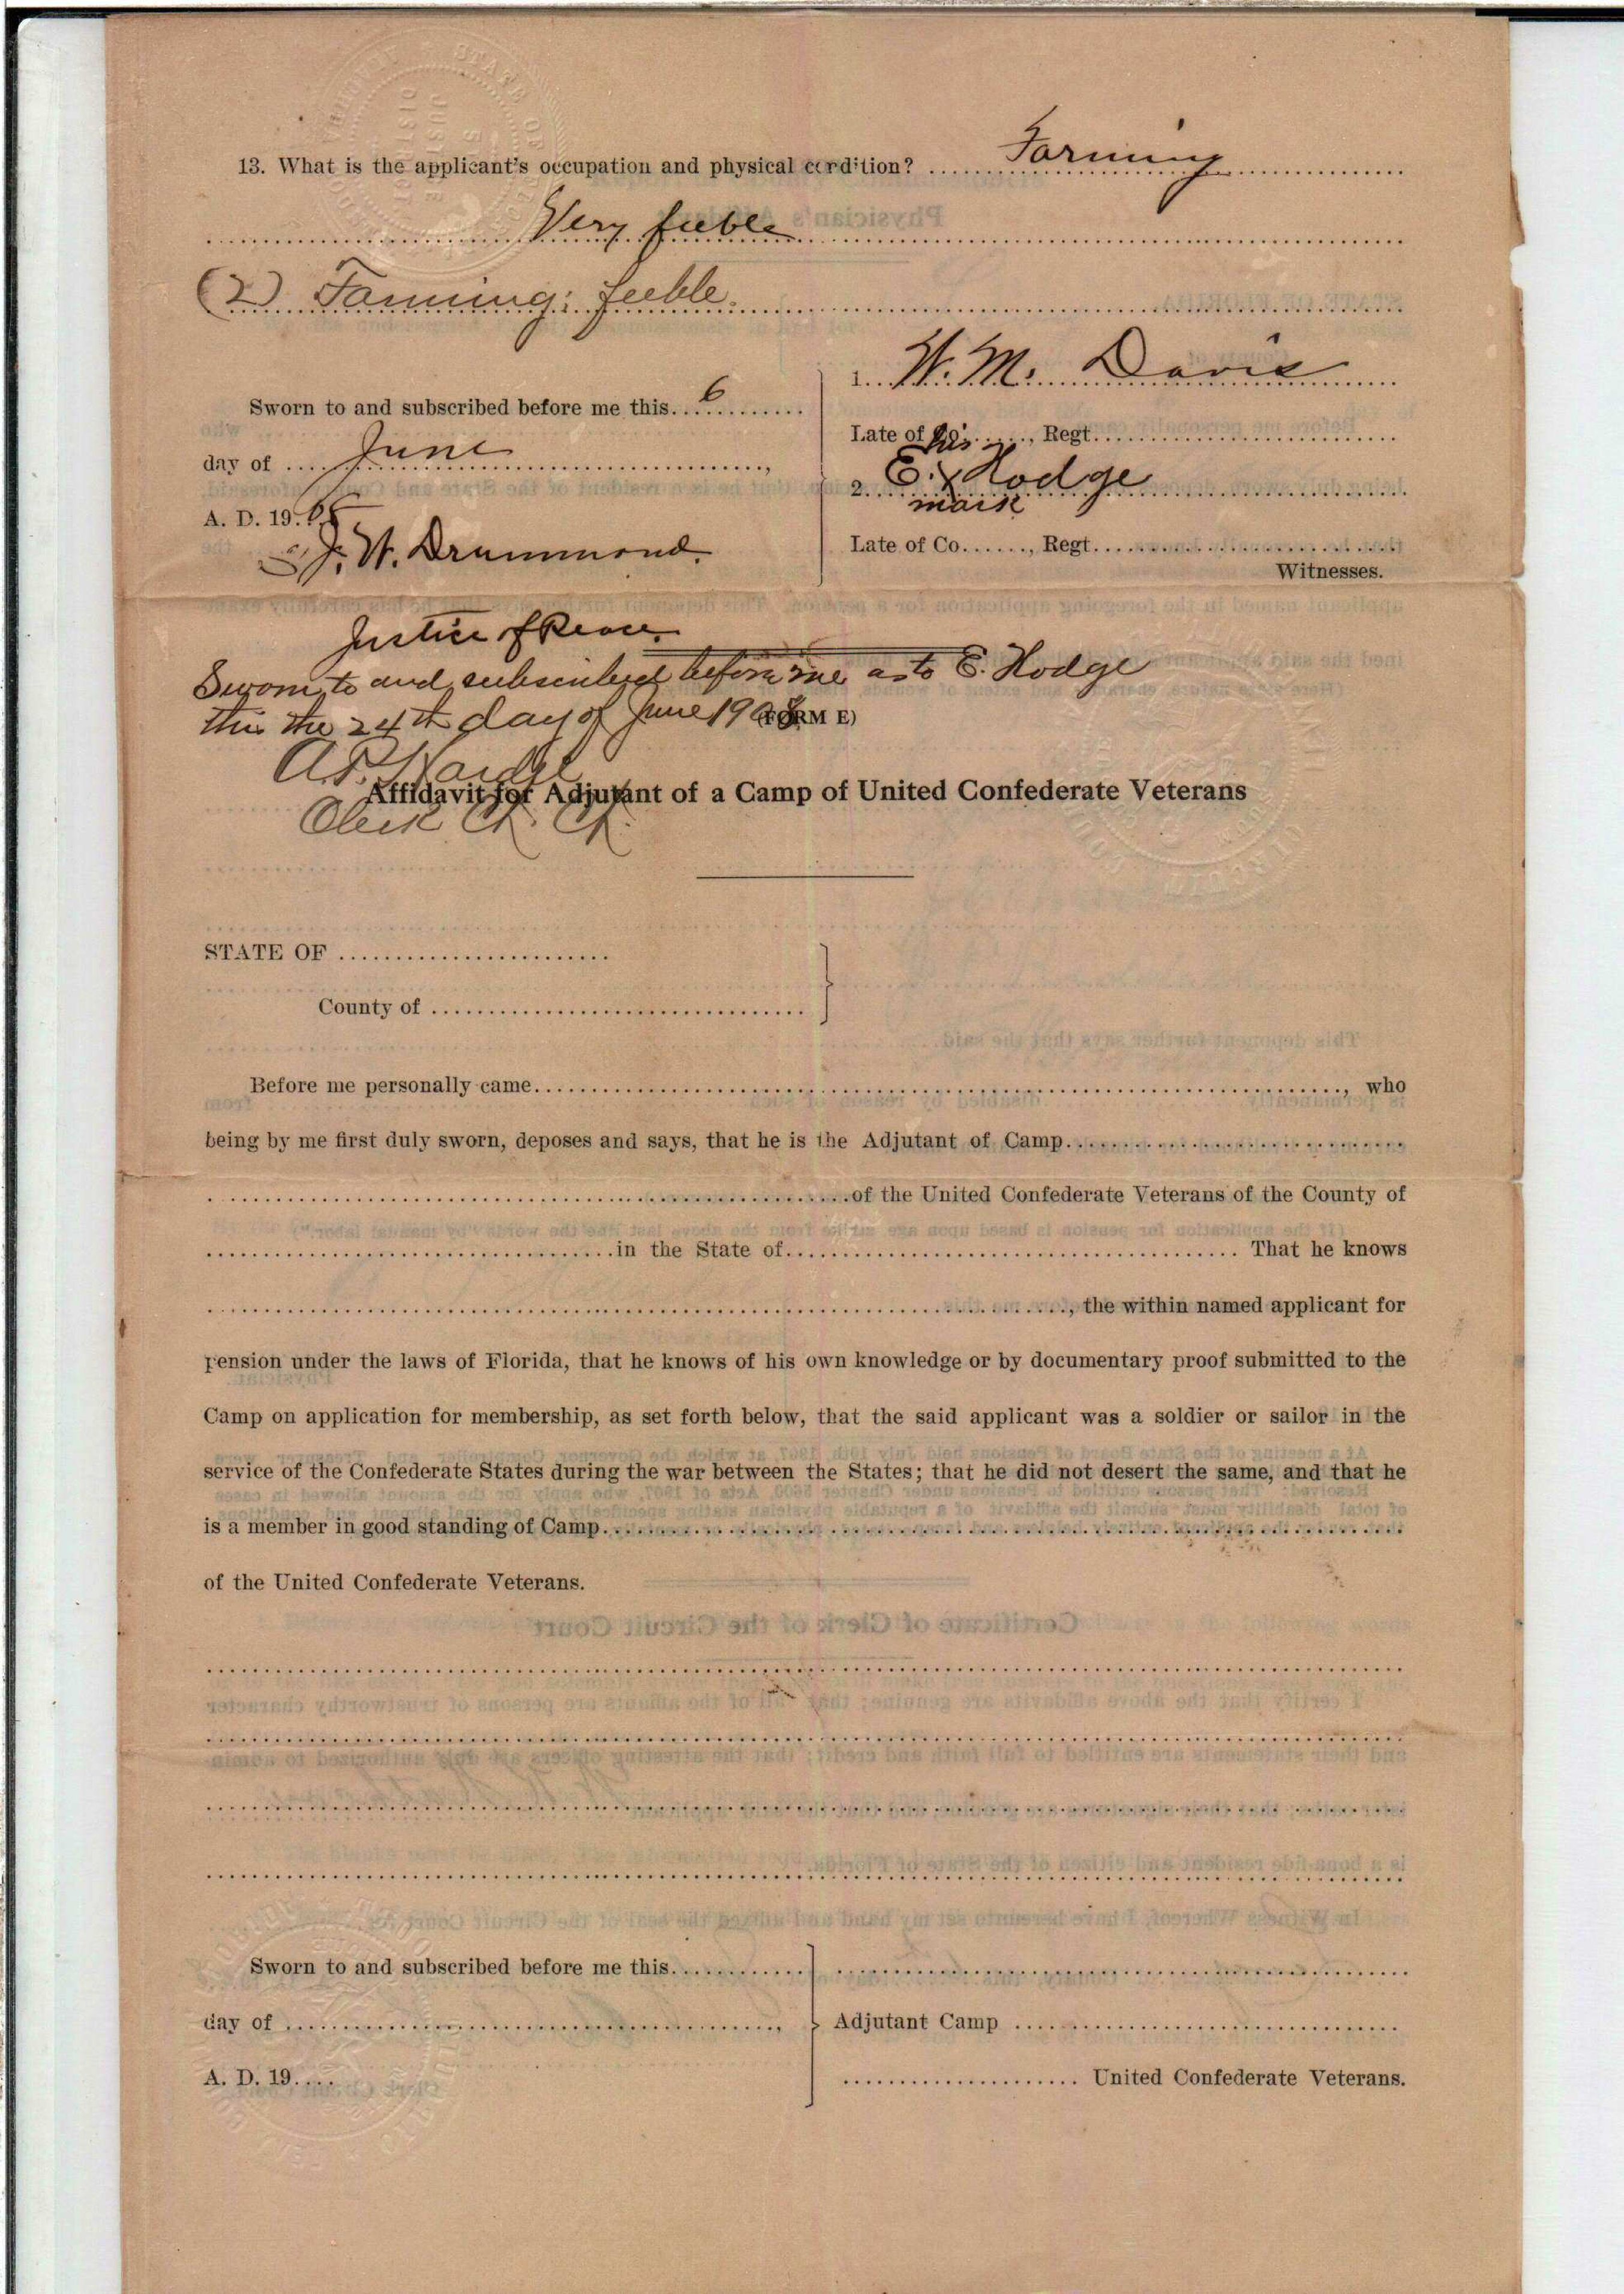 13. What is the applicant's occupation and physical condition? Farming
Very feeble
(2) Farming; feeble.
Sworn to and subscribed before me this 6
day of June,
A. D. 1908
J. W. Drummond.
Justice of Peace.
1. W. M. Davis
Late of Co......, Regt.
his
2. E. X Hodge
mark
Late of Co......, Regt.
Witnesses.
Sworn to and subscribed before me as to E. Hodge
this the 24th day of June 1908.
(FORM E)
Clerk Ct. Ct.
Affidavit for Adjutant of a Camp of United Confederate Veterans
STATE OF
County of
Before me personally came, who
being by me first duly sworn, deposes and says, that he is the Adjutant of Camp
of the United Confederate Veterans of the County of
in the State of. That he knows
, the within named applicant for
pension under the laws of Florida, that he knows of his own knowledge or by documentary proof submitted to the
Camp on application for membership, as set forth below, that the said applicant was a soldier or sailor in the
service of the Confederate States during the war between the States; that he did not desert the same, and that he
is a member in good standing of Camp
of the United Confederate Veterans.
Sworn to and subscribed before me this
day of,
A. D. 19....
Adjutant Camp
United Confederate Veterans.